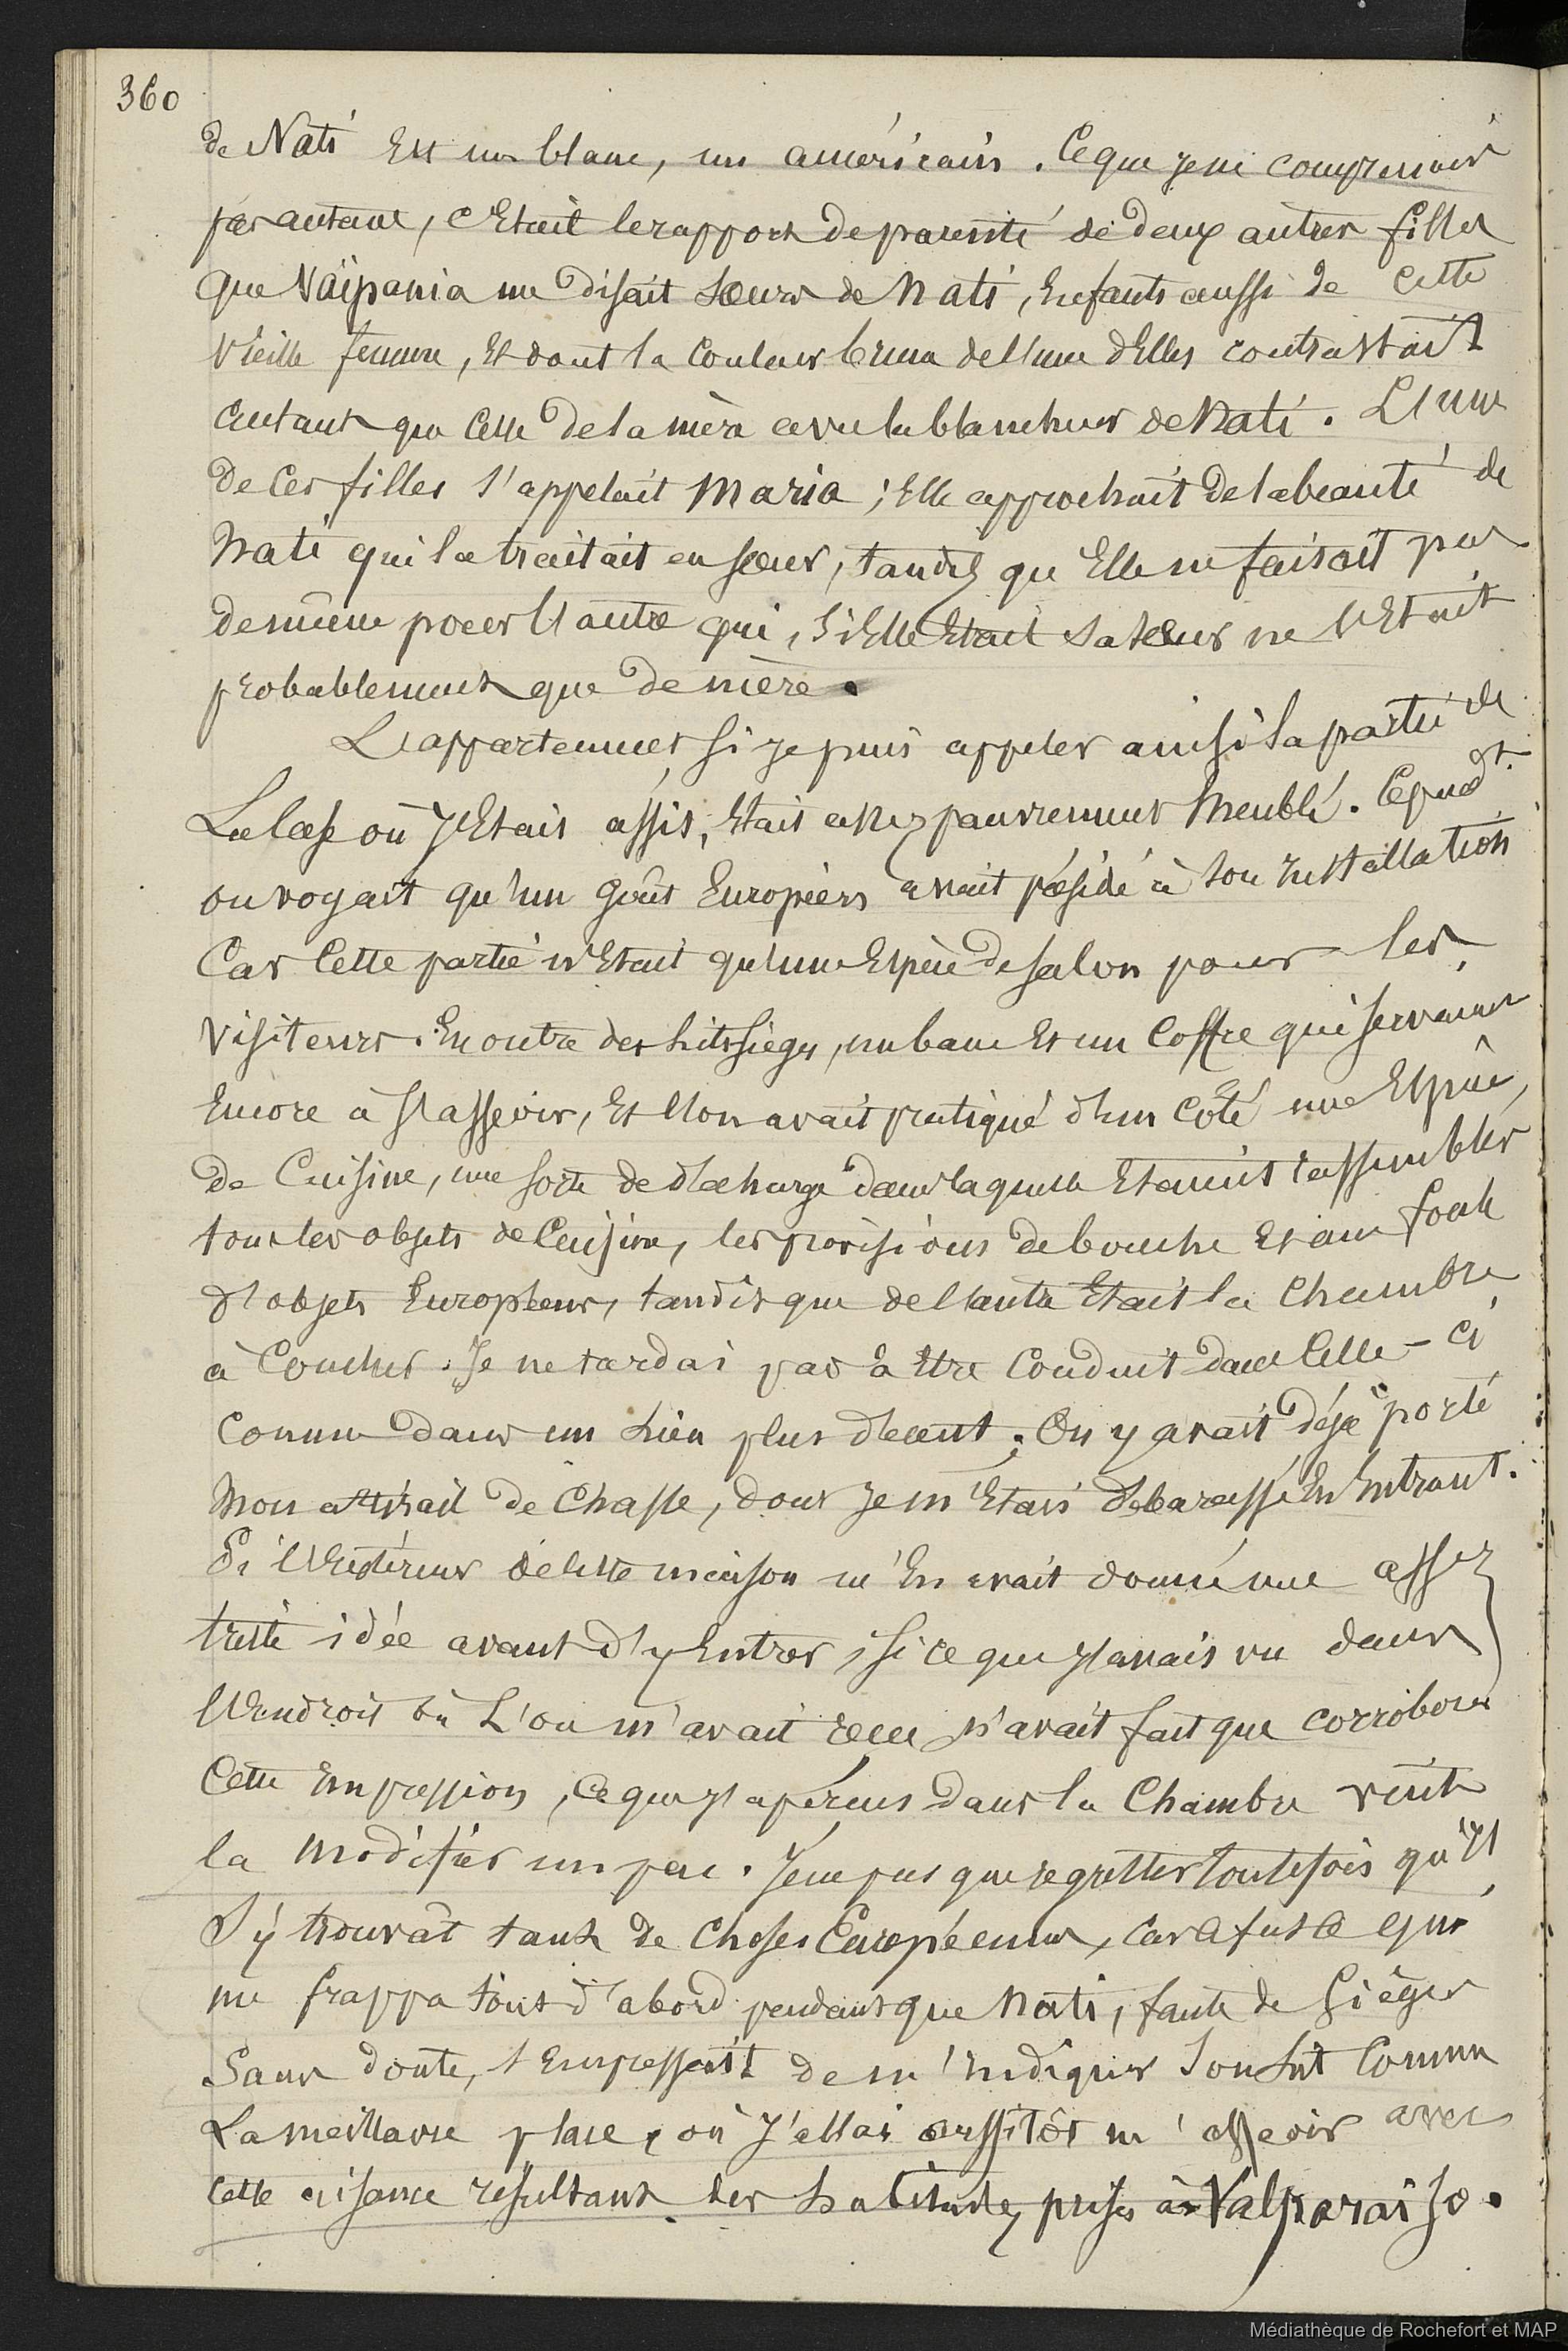 360
de Nati est un blanc, un américain. Ce que je ne comprenais
pas autant, c'etait le rapport de parenté de deux autres filles
que Vaïpania me disait sœurs de Nati, enfants aussi de cette
vieille femme, et dont la couleur brune de l'une d'elles contrastait
autant que celle de la mère avec la blancheur de Nati. L'une
de ces filles s'appelait Maria; elle approchait de la beauté de
Nati qui la traitait en sœur, tandis qu'elle ne faisait pas
de même pour l'autre qui, si elle etait sa sœur ne l'etait
probablement que de mère.
L'appartement si je puis appeler ainsi la partie de
la case où j'etais assis, était assez pauvrement meublé. Cepend.t
on voyait qu'un goût Européen avait présidé à son installation
car cette partie n'etait qu'une espèce de salon pour les
visiteurs. En outre des lits sièges, un banc et un coffre qui servaient
encore à s'asseoir, et l'on avait pratiqué d'un coté une espèce
de cuisine, une sorte de décharge dans laquelle etaient rassemblés
tous les objets de cuisine, les provisions de bouche et une foule
d'objets Européens, tandis que de l'autre etait la chambre
à coucher. Je ne tardai pas à être conduit dans celle-ci
comme dans un lieu plus décent. On y avait déjà porté
mon attirail de chasse, dont je m'etais débarassé en entrant.
Si l'extérieur de cette maison m'en avait donné une assez
triste idée avant d'y entrer, si ce que j'avais vu dans
l'endroit où l'on m'avait reçu n'avait fait que corroborer
cette impression, ce que j'apérçus dans la chambre vint
la modifier un peu. Je ne pus que regretter toutefois qu'il
s'y trouvât tant de choses Européennes, car ce fut ce qui
me frappa tout d'abord pendant que Nati, faute de sièges
sans doute, s'empressait de m'indiquer son lit comme
la meilleure place, où j'allai aussitôt m'asseoir avec
cette aisance résultant des habitudes prises à Valparaiso.
Médiathèque de Rochefort et MAP